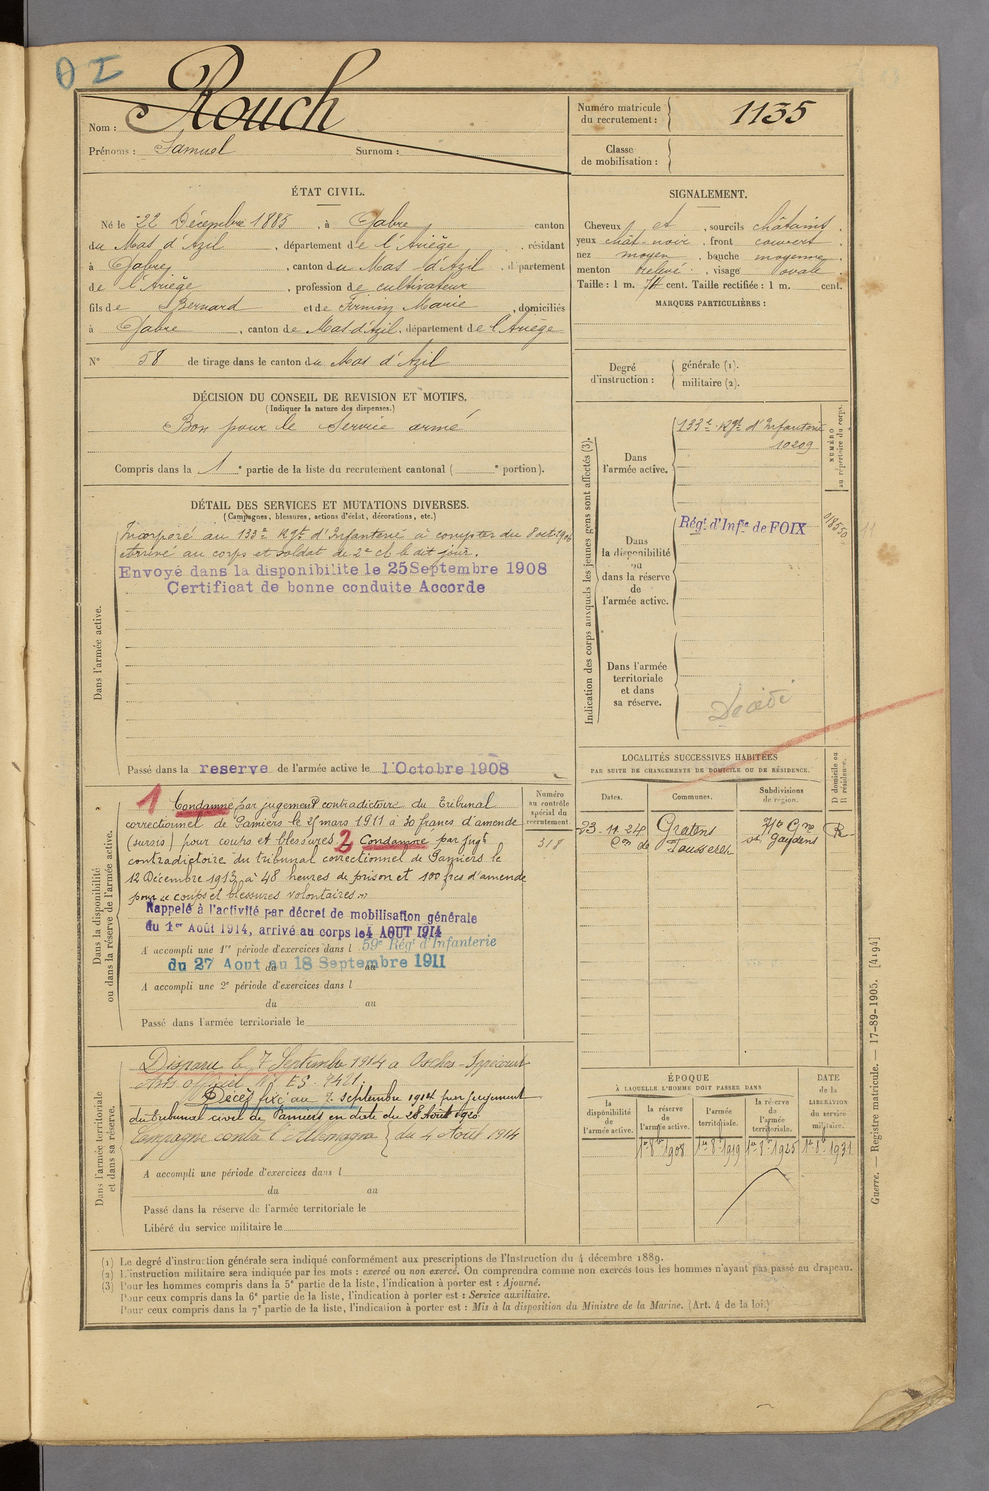 O I
Nom : Rouch
Prénoms : Samuel Surnom :
Numéro matricule du recrutement : 1135
Classe de mobilisation :
ÉTAT CIVIL.
Né le 22 Décembre 1885, à Gabre canton
du Mas d'Azil, département de l'Ariège, résidant
à Gabre, canton du Mas d'Azil, département
de l'Ariège, profession de cultivateur
fils de Bernard et de Firmin Marie, domiciliés
à Gabre, canton de Mas d'Azil, département de l'Ariège
N° 58 de tirage dans le canton du Mas d'Azil
SIGNALEMENT.
Cheveux et, sourcils châtains,
yeux chât. noir, front couvert,
nez moyen, bouche moyenne,
menton relevé, visage ovale.
Taille : 1 m. cent. Taille rectifiée : 1 m. cent.
MARQUES PARTICULIÈRES :
Degré d'instruction : générale (1).
militaire (2).
DÉCISION DU CONSEIL DE REVISION ET MOTIFS.
(Indiquer la nature des dispenses.)
Bon pour le Service armé
Compris dans la 1 e partie de la liste du recrutement cantonal ( e portion).
DÉTAIL DES SERVICES ET MUTATIONS DIVERSES.
(Campagnes, blessures, actions d'éclat, décorations, etc.)
Dans l'armée active.
Incorporé au 133e Rgt d'Infanterie à compter du 8 oct. 1906
Arrivé au corps et soldat de 2e cl. le dit jour.
Envoyé dans la disponibilite le 25 Septembre 1908
Certificat de bonne conduite Accorde
Passé dans la reserve de l'armée active le 1 Octobre 1908
Indication des corps auxquels les jeunes gens sont affectés (3).
NUMÉRO au répertoire du corps.
Dans l'armée active.
133e Rgt d'Infanterie
10209
Dans la disponibilité ou dans la réserve de l'armée active.
Régt d'Infie de FOIX
01850
Dans l'armée territoriale et dans sa réserve.
Décédé
Dans la disponibilité ou dans la réserve de l'armée active.
Numéro au contrôle spécial du recrutement.
318
1 Condamné par jugement contradictoire du Tribunal
correctionnel de Pamiers le 21 mars 1911 à 30 francs d'amende
(sursis) pour coups et blessures 2 Condamné par jugt
contradictoire du tribunal correctionnel de Pamiers le
12 Décembre 1913 à 48 heures de prison et 100 frcs d'amende
pour "coups et blessures volontaires"
Rappelé à l'activité par décret de mobilisation générale
du 1er Août 1914, arrivé au corps le 4 AOUT 1914
A accompli une 1re période d'exercices dans l 59e Régt d'Infanterie
du 27 Aout au 18 Septembre 1911
A accompli une 2e période d'exercices dans l
du au
Passé dans l'armée territoriale le
LOCALITÉS SUCCESSIVES HABITÉES
PAR SUITE DE CHANGEMENTS DE DOMICILE OU DE RÉSIDENCE.
Dates. Communes. Subdivisions de région. D domicile ou R résidence.
23.11.24 Gratens St Gaudens R
Dans l'armée territoriale et dans sa réserve.
Disparu le 7 Septembre 1914 à
Avis officiel N° ES. 7421.
Décès fixé au 7 septembre 1914 par jugement
du Tribunal civil de Pamiers en date du 28 Août 1920
Campagne contre l'Allemagne du 4 Août 1914
A accompli une période d'exercices dans l
du au
Passé dans la réserve de l'armée territoriale le
Libéré du service militaire le
ÉPOQUE
À LAQUELLE L'HOMME DOIT PASSER DANS
la disponibilité de l'armée active. la réserve de l'armée active. l'armée territoriale. la réserve de l'armée territoriale.
DATE de la LIBÉRATION du service militaire.
1er 8bre 1908 1er 8bre 1919 1er 8bre 1925 1er 8bre 1931
(1) Le degré d'instruction générale sera indiqué conformément aux prescriptions de l'Instruction du 4 décembre 1889.
(2) L'instruction militaire sera indiquée par les mots : exercé ou non exercé. On comprendra comme non exercés tous les hommes n'ayant pas passé au drapeau.
(3) Pour les hommes compris dans la 5e partie de la liste, l'indication à porter est : Ajourné.
Pour ceux compris dans la 6e partie de la liste, l'indication à porter est : Service auxiliaire.
Pour ceux compris dans la 7e partie de la liste, l'indication à porter est : Mis à la disposition du Ministre de la Marine. (Art. 4 de la loi.)
Guerre. — Registre matricule. — 17-89-1905. [4194]